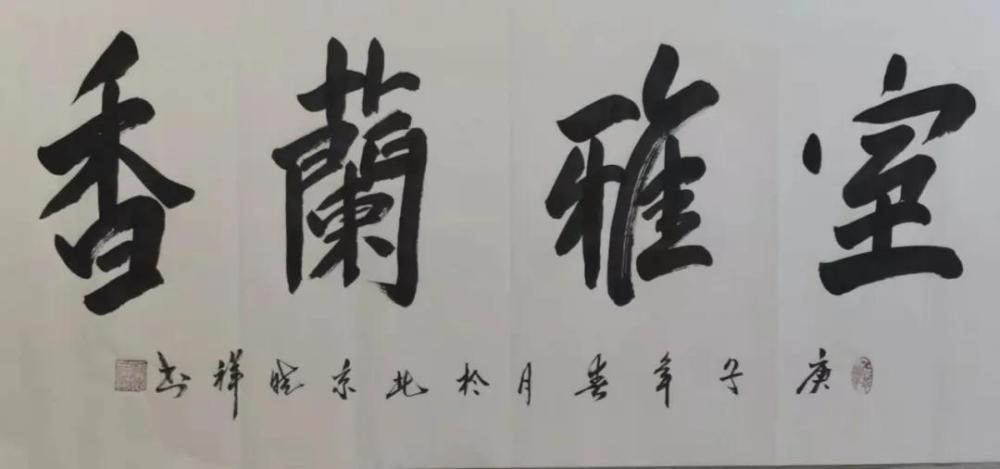 室雅蘭香
庚子年春月於北京晓祥书